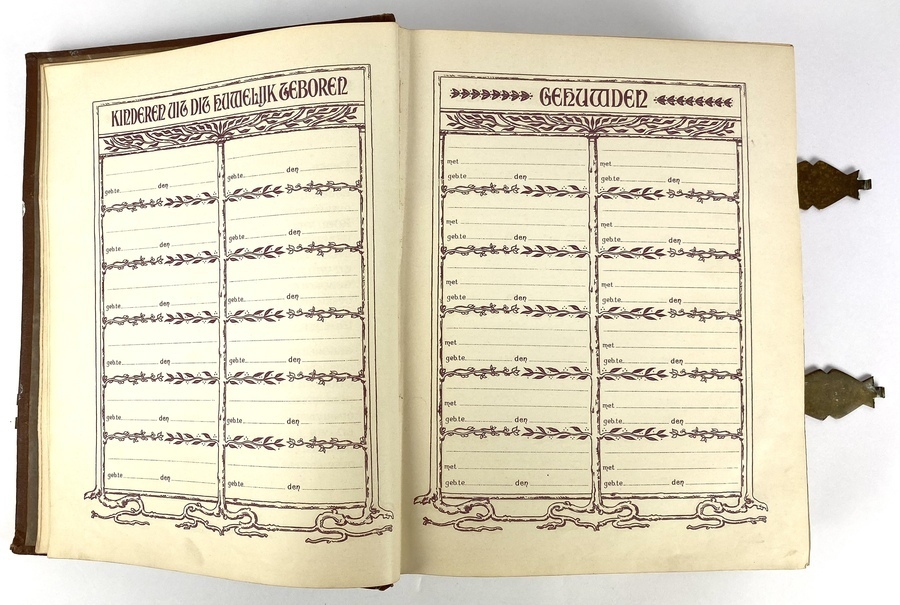 KINDEREN UIT DIT HUWELIJK GEBOREN
geb.te den geb.te den
geb.te den geb.te den
geb.te den geb.te den
geb.te den geb.te den
geb.te den geb.te den
geb.te den geb.te den
GEHUWDEN
met met
geb.te den geb.te den
met met
geb.te den geb.te den
met met
geb.te den geb.te den
met met
geb.te den geb.te den
met met
geb.te den geb.te den
met met
geb.te den geb.te den